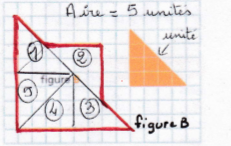 Aire = 5 unités
unité
1
2
figure
5
4
3
figure B